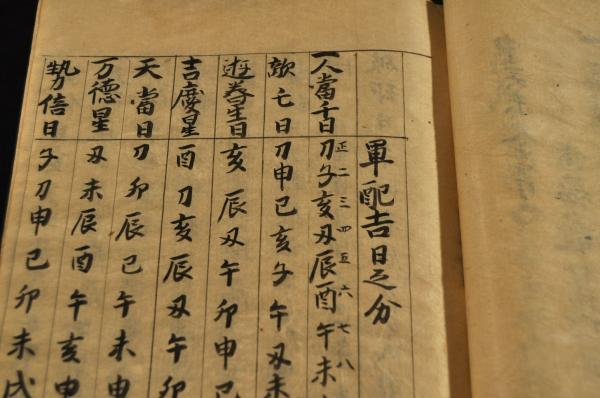 軍配吉日之分
正二三四五六七八
一人當千日 刀子亥丑辰酉午未
亡日 刀申巳亥子午丑未
亥辰丑午卯申巳
吉慶星 酉刀亥辰丑午卯
天當日 刀卯辰巳午未申
万德星 丑未辰酉午亥申
勢倍日 子刀申巳卯未戌